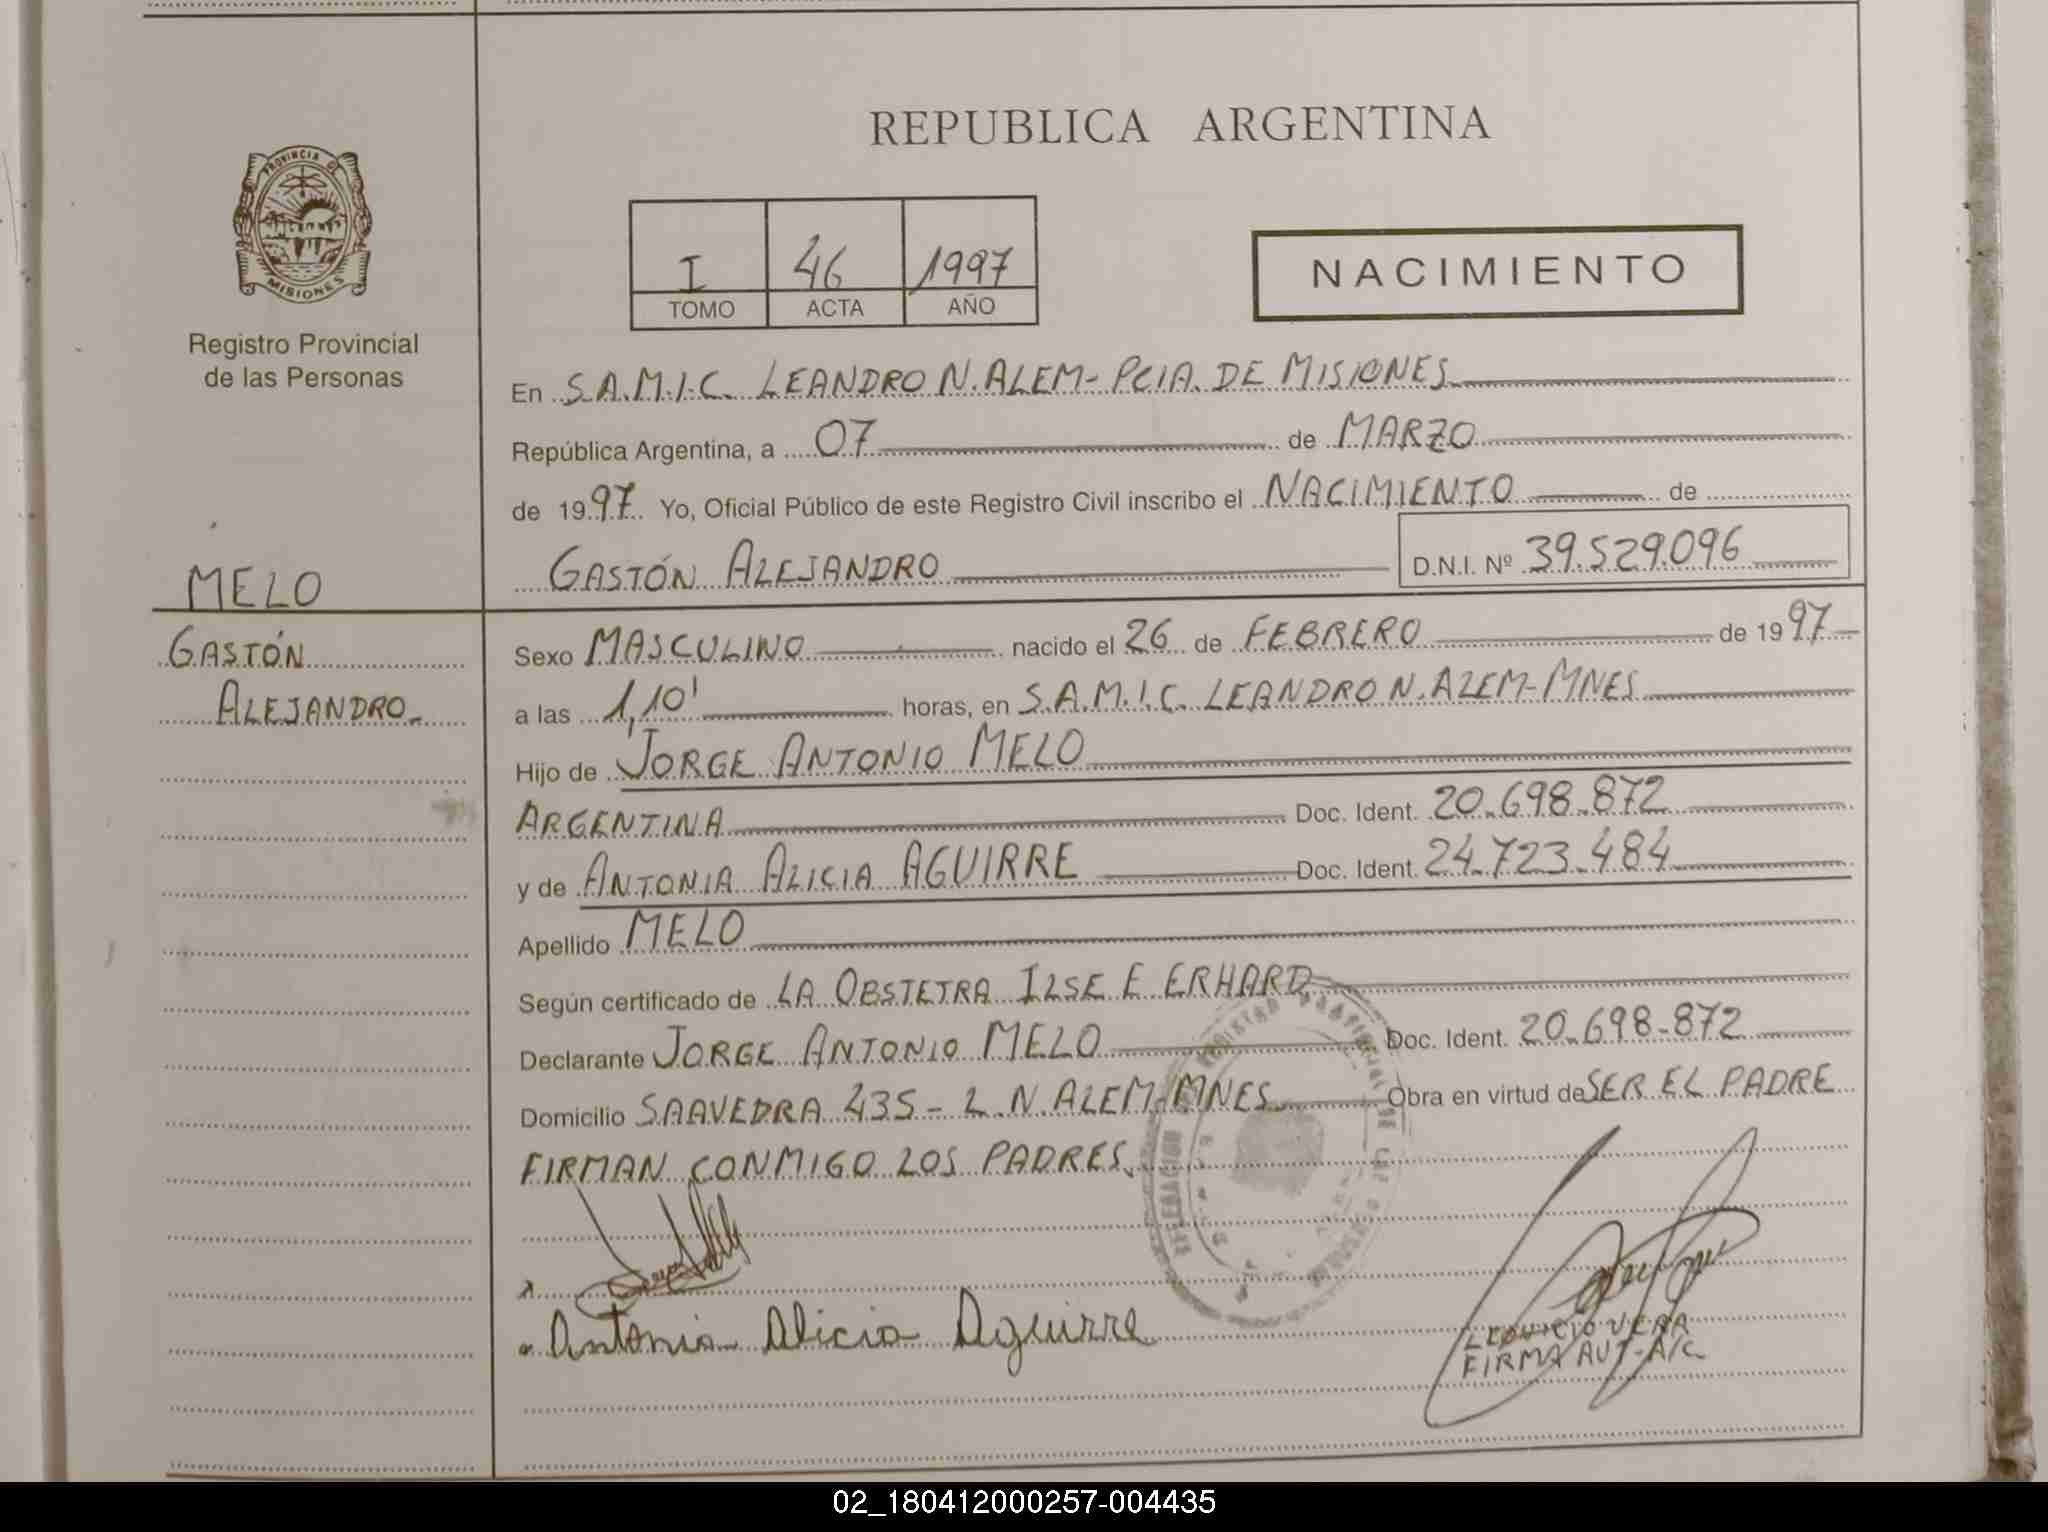 PROVINCIA DE
MISIONES
Registro Provincial
de las Personas
MELO
GASTÓN
ALEJANDRO
REPUBLICA ARGENTINA
I 46 1997
TOMO ACTA AÑO
NACIMIENTO
En S.A.M.I.C. LEANDRO N. ALEM - PCIA. DE MISIONES
República Argentina, a 07 de MARZO
de 1997 Yo, Oficial Público de este Registro Civil inscribo el NACIMIENTO de
GASTÓN ALEJANDRO D.N.I. Nº 39.529.096
Sexo MASCULINO nacido el 26 de FEBRERO de 1997
a las 1,10' horas, en S.A.M.I.C. LEANDRO N. ALEM - MNES
Hijo de JORGE ANTONIO MELO
ARGENTINA Doc. Ident. 20.698.872
y de ANTONIA ALICIA AGUIRRE Doc. Ident. 24.723.484
Apellido MELO
Según certificado de LA OBSTETRA ILSE E ERHARD
Declarante JORGE ANTONIO MELO Doc. Ident. 20.698.872
Domicilio SAAVEDRA 435 - L.N. ALEM - MNES Obra en virtud de SER EL PADRE
FIRMAN CONMIGO LOS PADRES.
Antonia Alicia Aguirre
VERA
FIRMA AUT - A/C
02_180412000257-004435